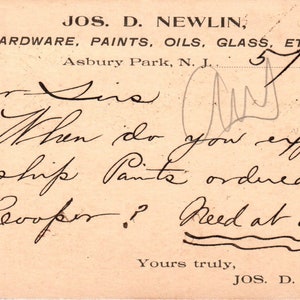 JOS. D. NEWLIN,
ARDWARE, PAINTS, OILS, GLASS, ET
Asbury Park, N. J. 5/
Sirs
When do you exp
ship Paints ordered
Cooper? Need at
Yours truly,
JOS. D.